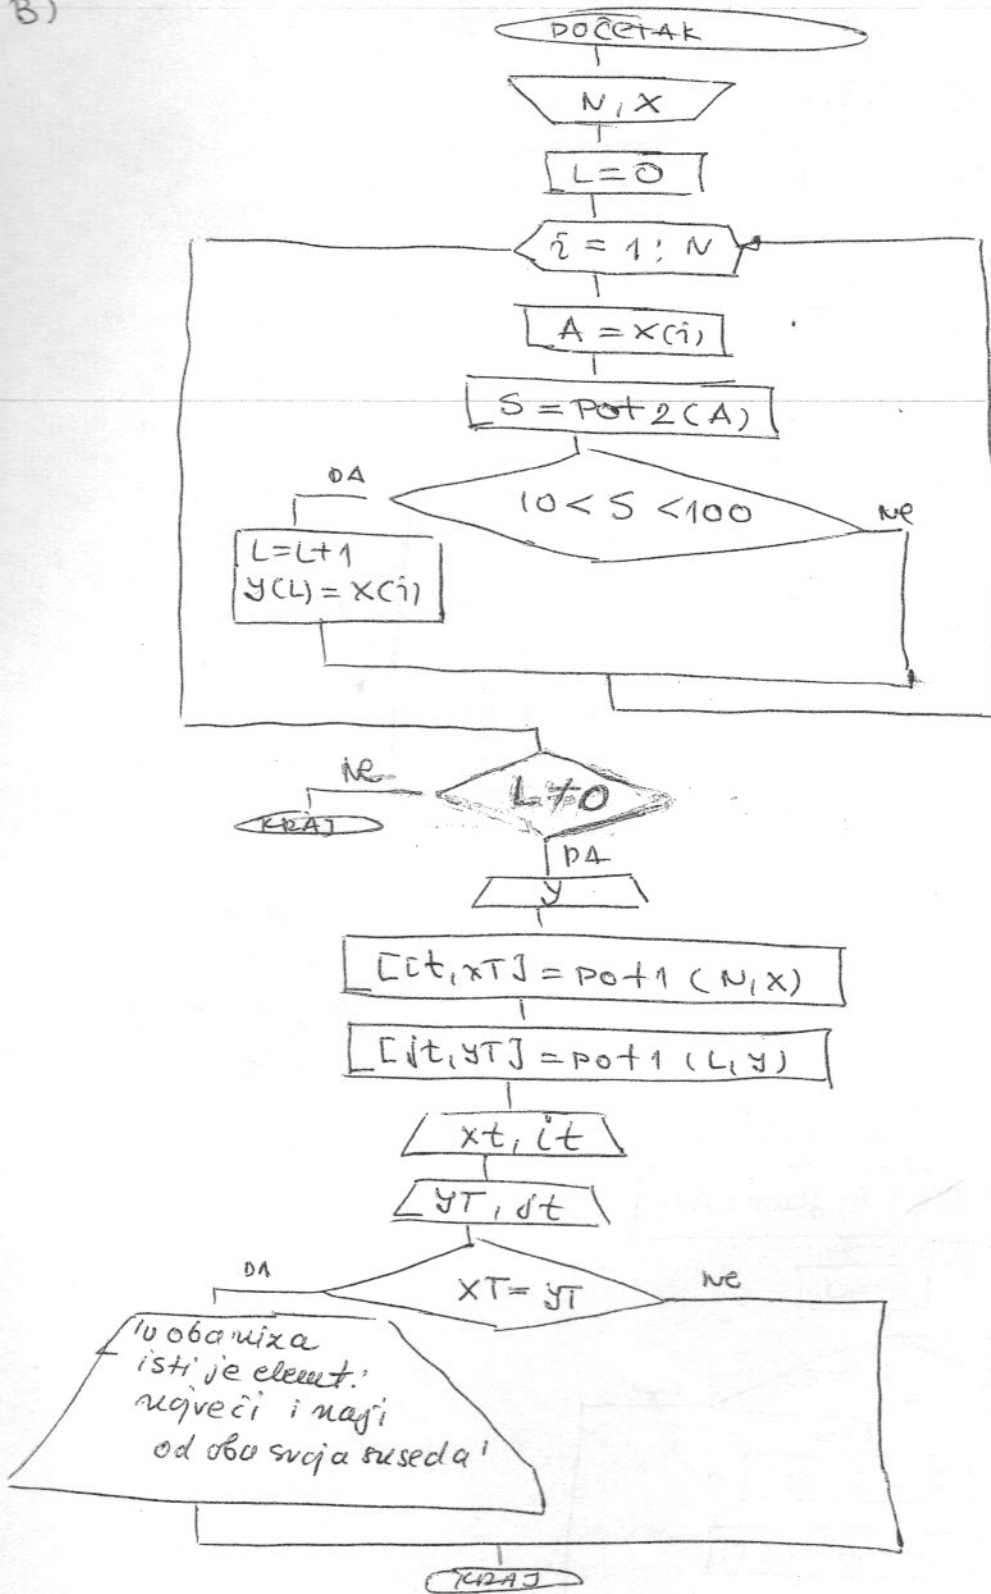 B)
POČETAK
N, X
L=0
i = 1 : N
A = X(i)
S = Pot2(A)
DA
10 < S < 100
Ne
L=L+1
Y(L) = X(i)
Ne
L≠0
KRAJ
DA
y
[it, xT] = pot1 (N, X)
[jt, yT] = pot1 (L, y)
xt, it
yT, jt
DA
xT = yT
Ne
'u oba niza
isti je elemt.
najveći i
od oba svoja suseda'
KRAJ